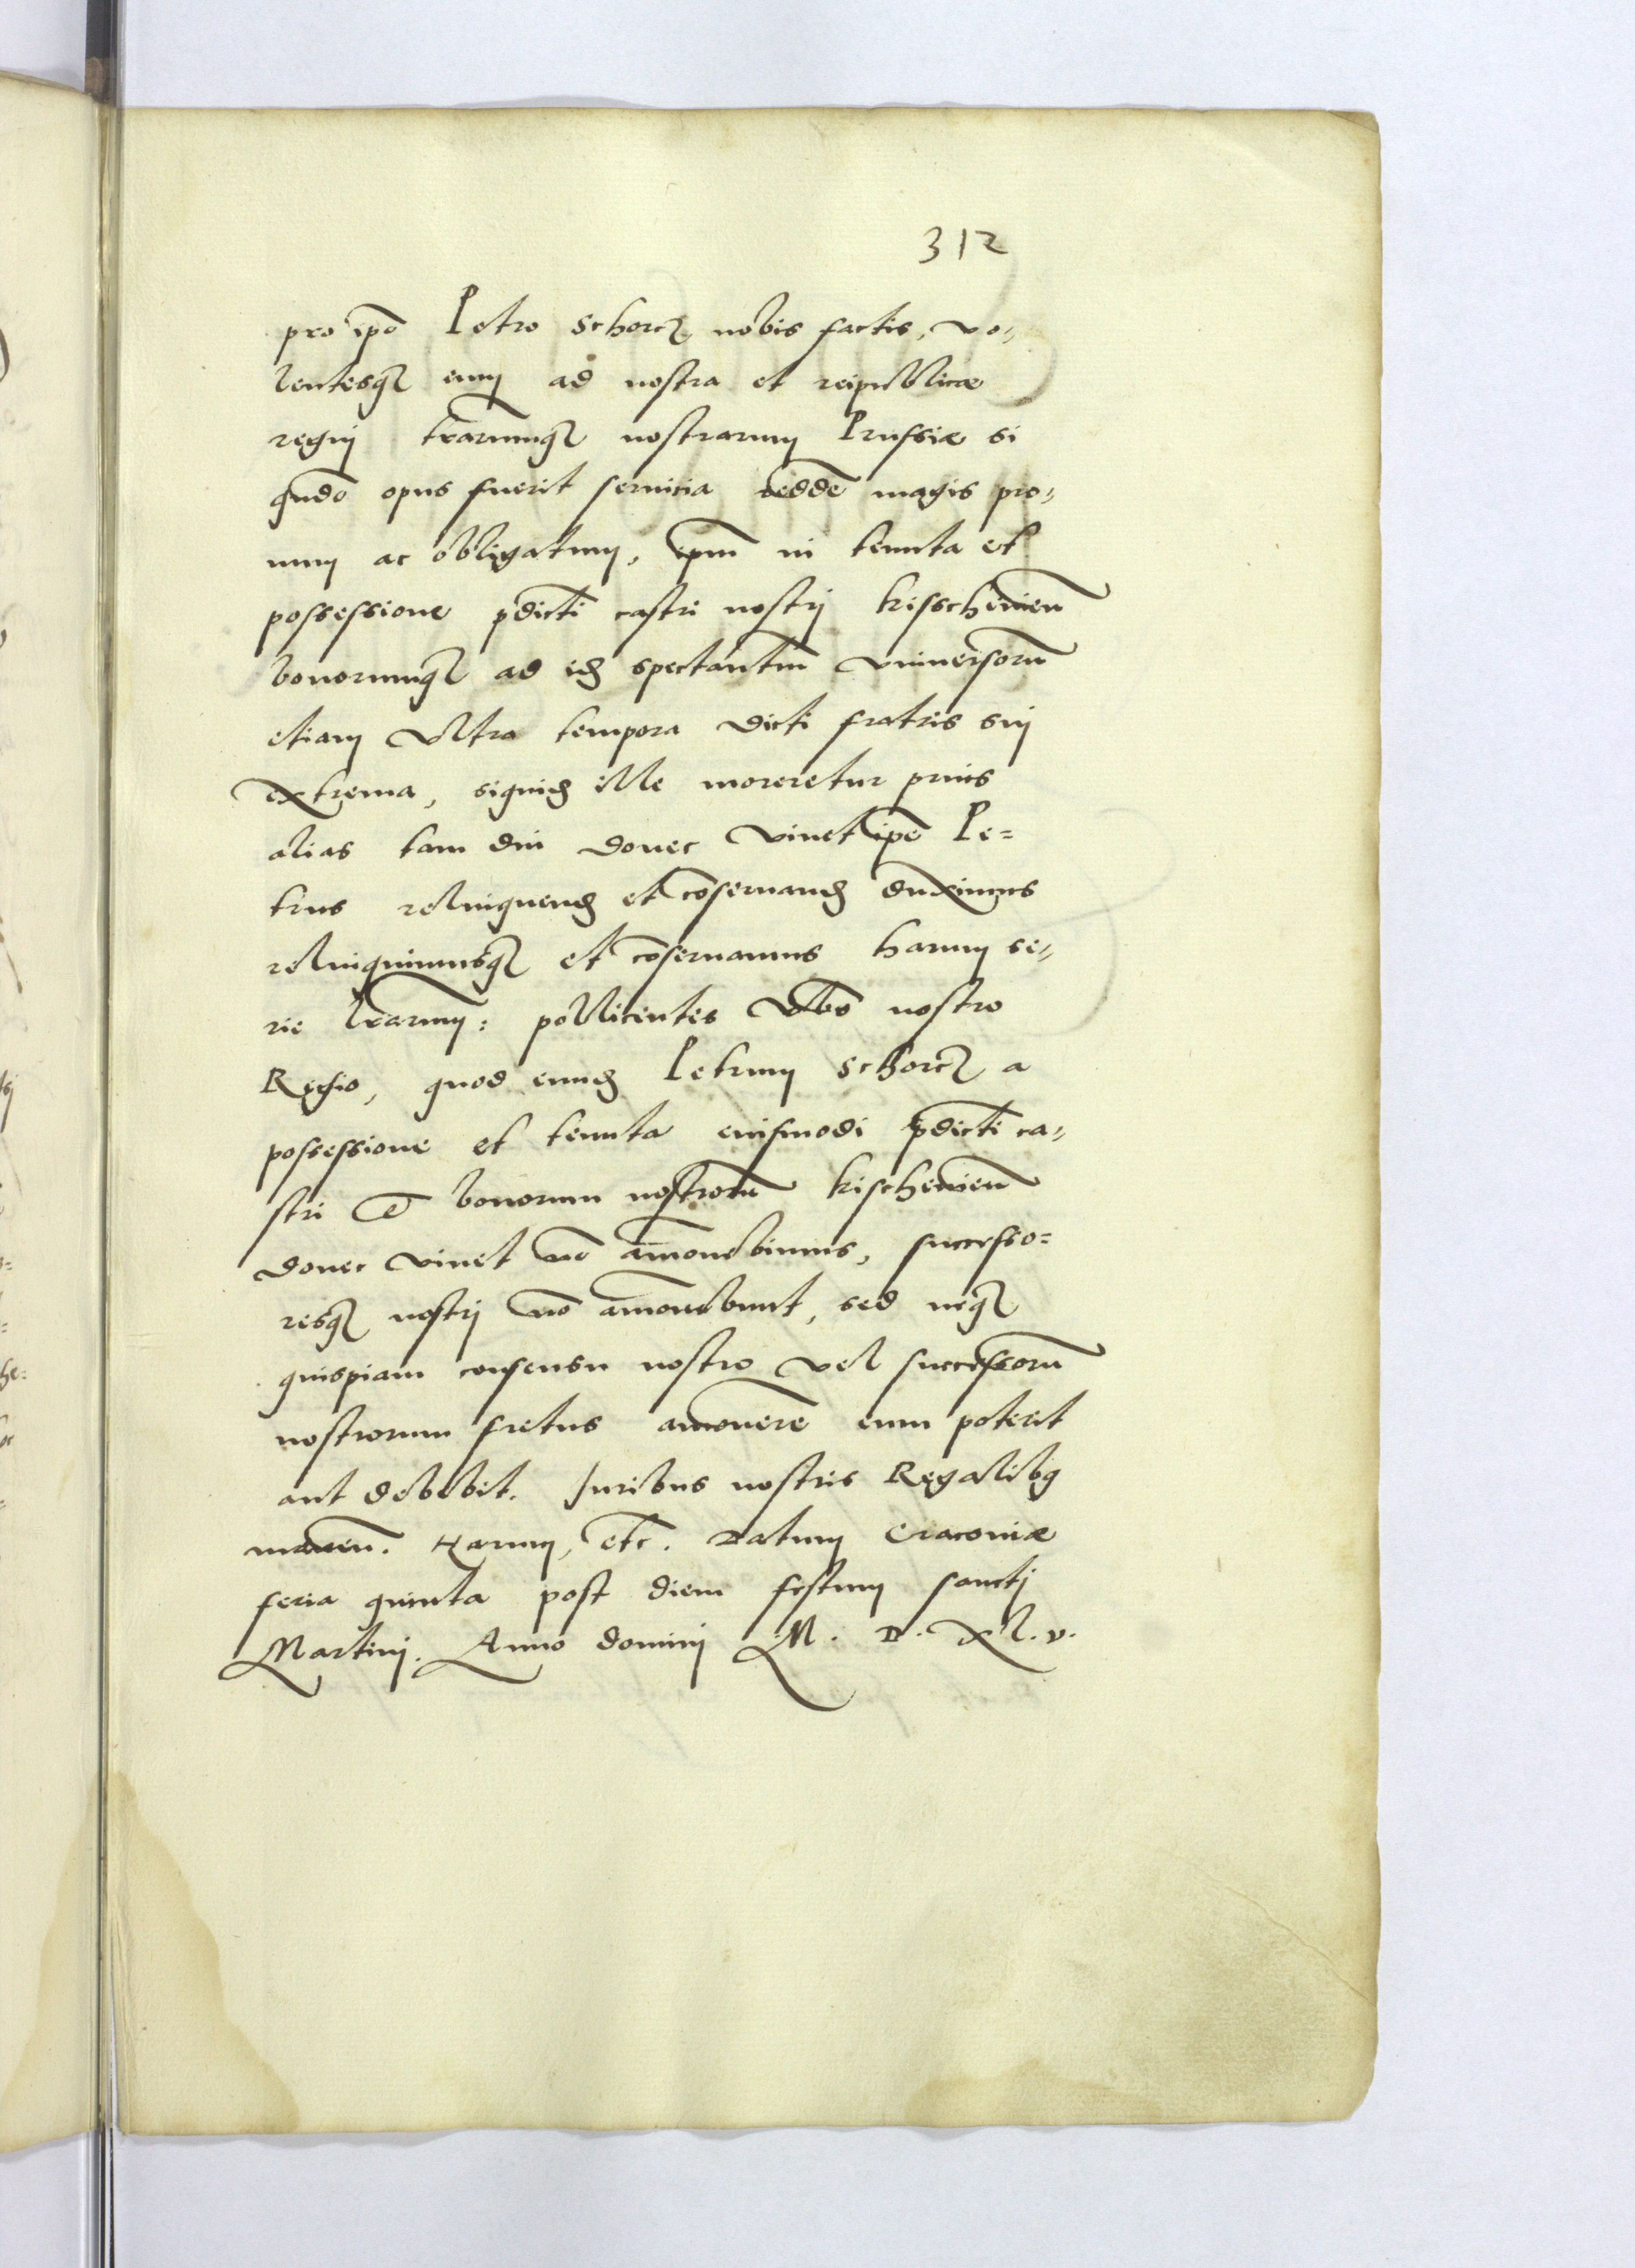 312
pro ip̄o Petro Schorcz nobis factis, vo„
lentesq₃ eum ad nostra et reipublicæ
regni trarumq₃ nostrarum Prussiæ si
qn̄do opus fuerit servitia redde͂ magis pro„
num ac obligatum, ip̄m in tenuta et
possessione p̄dicti castri nostri kisscheuien̄
bonorumq₃ ad id spectantiū vniuersorū
etiam vltra tempora dicti fratris sui
extrema, siquid ille moreretur prius
alias tam diu donec viuet ip̄e Pe=
trus relinquend et cōseruand duximus
relinquimusq₃ et cōseruamus harum se„
rie lrarum: pollicentes vbo nostro
Regio, quod eund Petrum Schorcz a
possessione et tenuta eiusmodi p̄dicti ca„
stri et bonorum nostrorū kischeuien̄
donec viuet nō amouebimus, successo=
resq₃ nostri nō amouebunt, sed neq₃
quispiam consensu nostro vel successorū
nostrorum fretus amouere eum poterit
aut debebit. Juribus nostris Regalibq
manen̄. Harum, etc. Datum Cracouiæ
feria quinta post diem festum sancti
Martini. Anno domini M. D. xl. v.